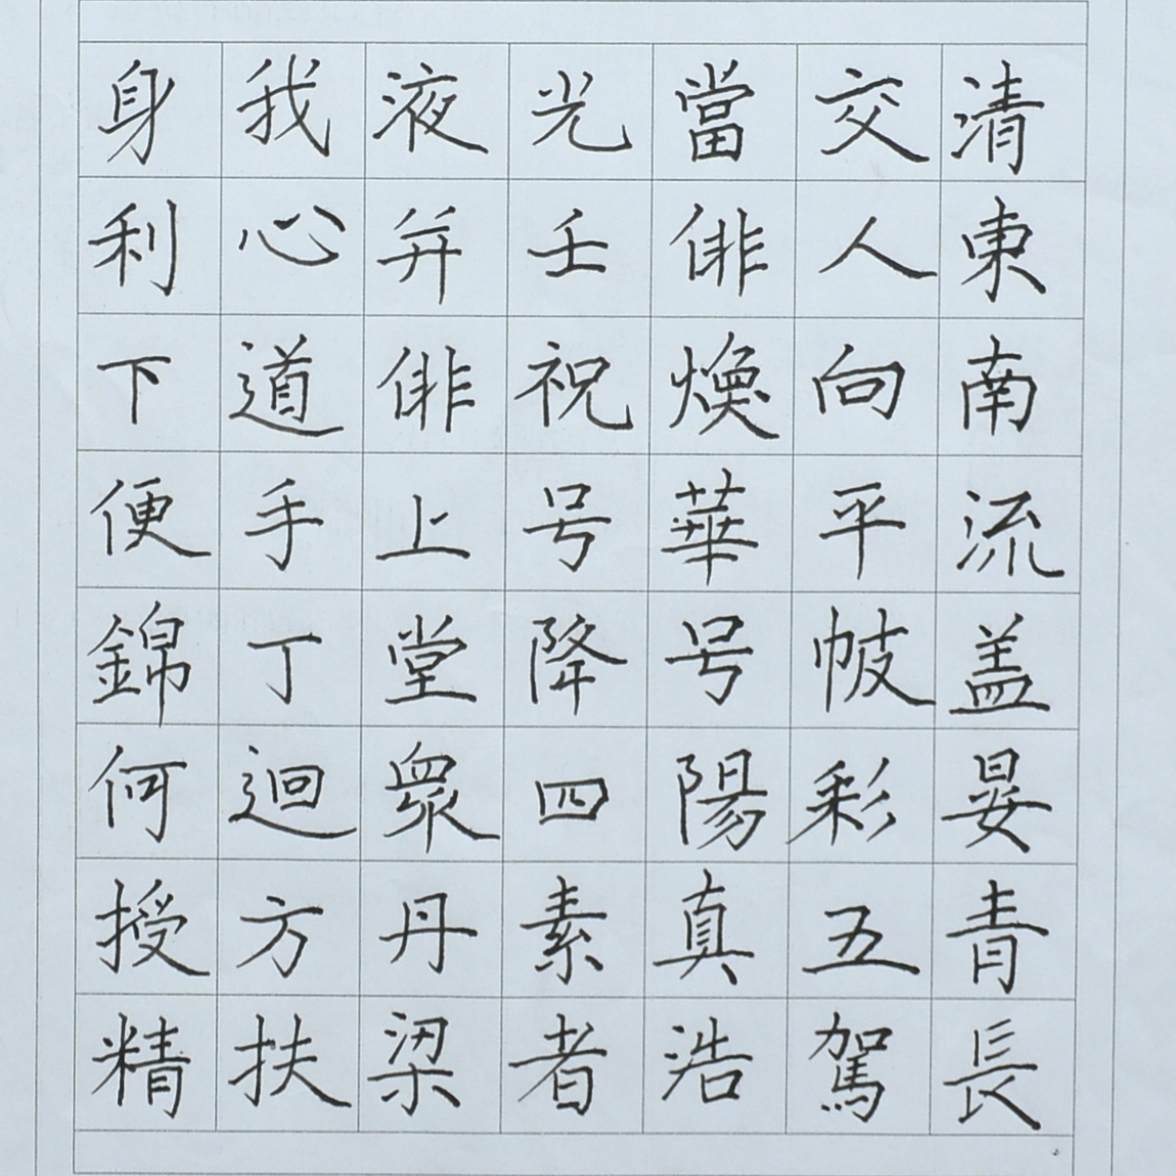 清東南流盖晏青長
交人向平帔彩五駕
當俳煥華号陽真浩
光壬祝号降四素者
液并俳上堂眾丹梁
我心道手丁迴方扶
身利下便錦何授精